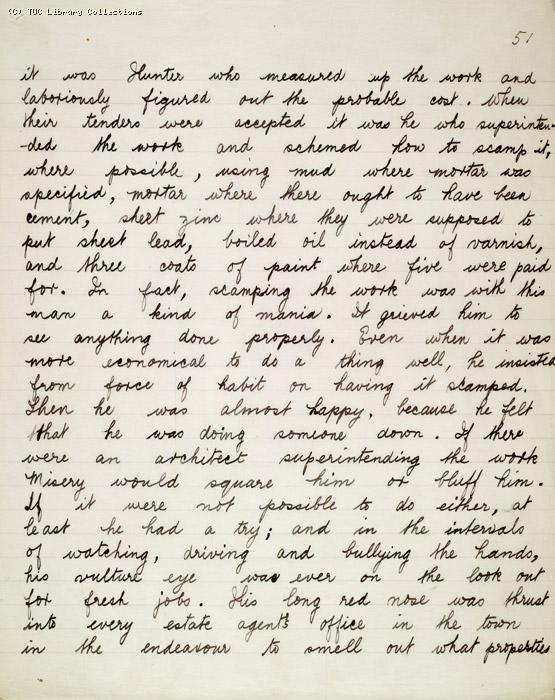 (C) TUC Library Collections
51
it was Hunter who measured up the work and
laboriously figured out the probable cost. When
their tenders were accepted it was he who superinten-
-ded the work and schemed how to scamp it,
where possible, using mud where mortar was
specified, mortar where there ought to have been
cement, sheet zinc where they were supposed to
put sheet lead, boiled oil instead of varnish,
and three coats of paint where five were paid
for. In fact, scamping the work was with this
man a kind of mania. It grieved him to
see anything done properly. Even when it was
more economical to do a thing well, he insisted
from force of habit on having it scamped.
Then he was almost happy, because he felt
that he was doing someone down. If there
were an architect superintending the work
Misery would square him or bluff him.
If it were not possible to do either, at
least he had a try; and in the intervals
of watching, driving and bullying the hands,
his vulture eye was ever on the look out
for fresh jobs. His long red nose was thrust
into every estate agent's office in the town
in the endeavour to smell out what properties